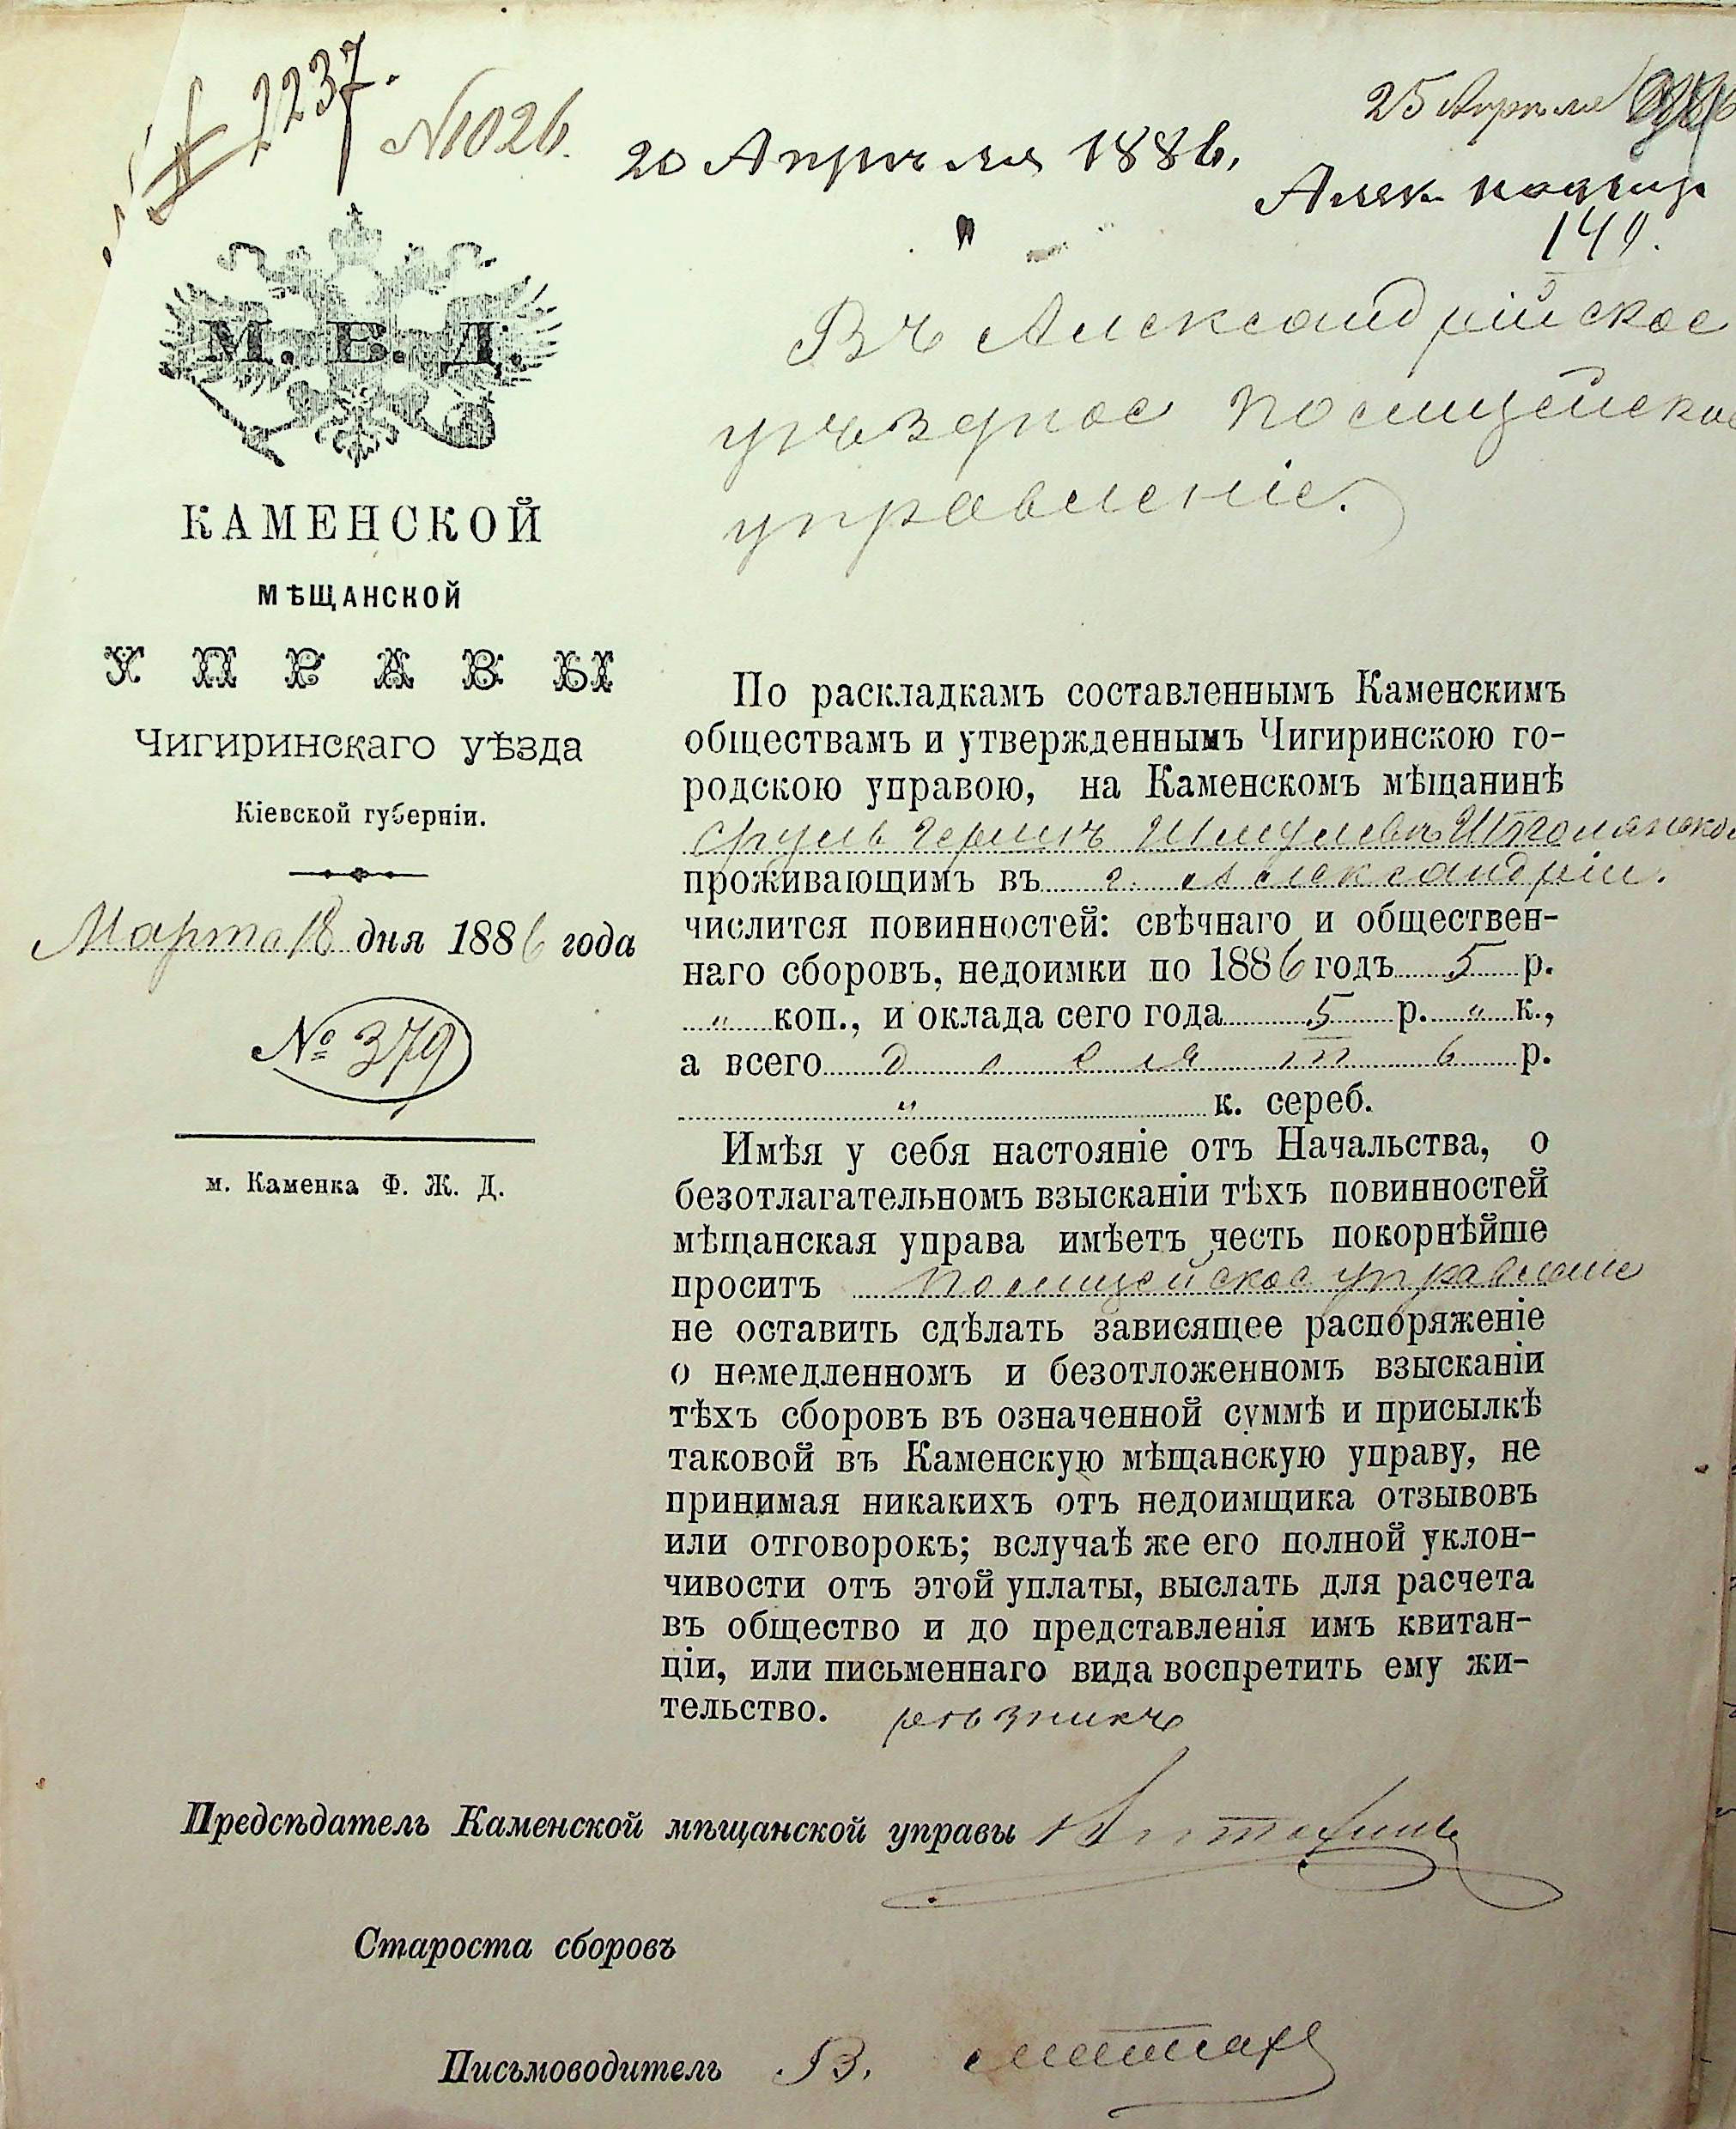 № 2237.
№ 1026.
20 Апрѣля 1886.
25 Апрѣля
Алек.
141.
М. В. Д.
КАМЕНСКОЙ
МѢЩАНСКОЙ
УПРАВЫ
Чигиринскаго уѣзда
Кіевской губерніи.
Марта 18 дня 1886 года
№ 379
м. Каменка Ф. Ж. Д.
Въ Александрійское
уѣздное полицейское
управленіе.
По раскладкамъ составленнымъ Каменскимъ
обществамъ и утвержденнымъ Чигиринскою го-
родскою управою, на Каменскомъ мѣщанинѣ
Сруль Гершкѣ Шмулевѣ
проживающимъ въ г. Александріи.
числится повинностей: свѣчнаго и обществен-
наго сборовъ, недоимки по 1886 годъ 5 р.
" коп., и оклада сего года 5 р. " к.,
а всего десять р.
" к. сереб.
Имѣя у себя настояніе отъ Начальства, о
безотлагательномъ взысканіи тѣхъ повинностей
мѣщанская управа имѣетъ честь покорнѣйше
проситъ полицейское управленіе
не оставить сдѣлать зависящее распоряженіе
о немедленномъ и безотложенномъ взысканіи
тѣхъ сборовъ въ означенной суммѣ и присылкѣ
таковой въ Каменскую мѣщанскую управу, не
принимая никакихъ отъ недоимщика отзывовъ
или отговорокъ; вслучаѣ же его полной уклон-
чивости отъ этой уплаты, выслать для расчета
въ общество и до представленія имъ квитан-
ціи, или письменнаго вида воспретить ему жи-
тельство. рѣзникъ
Предсѣдатель Каменской мѣщанской управы
Староста сборовъ
Письмоводитель В.